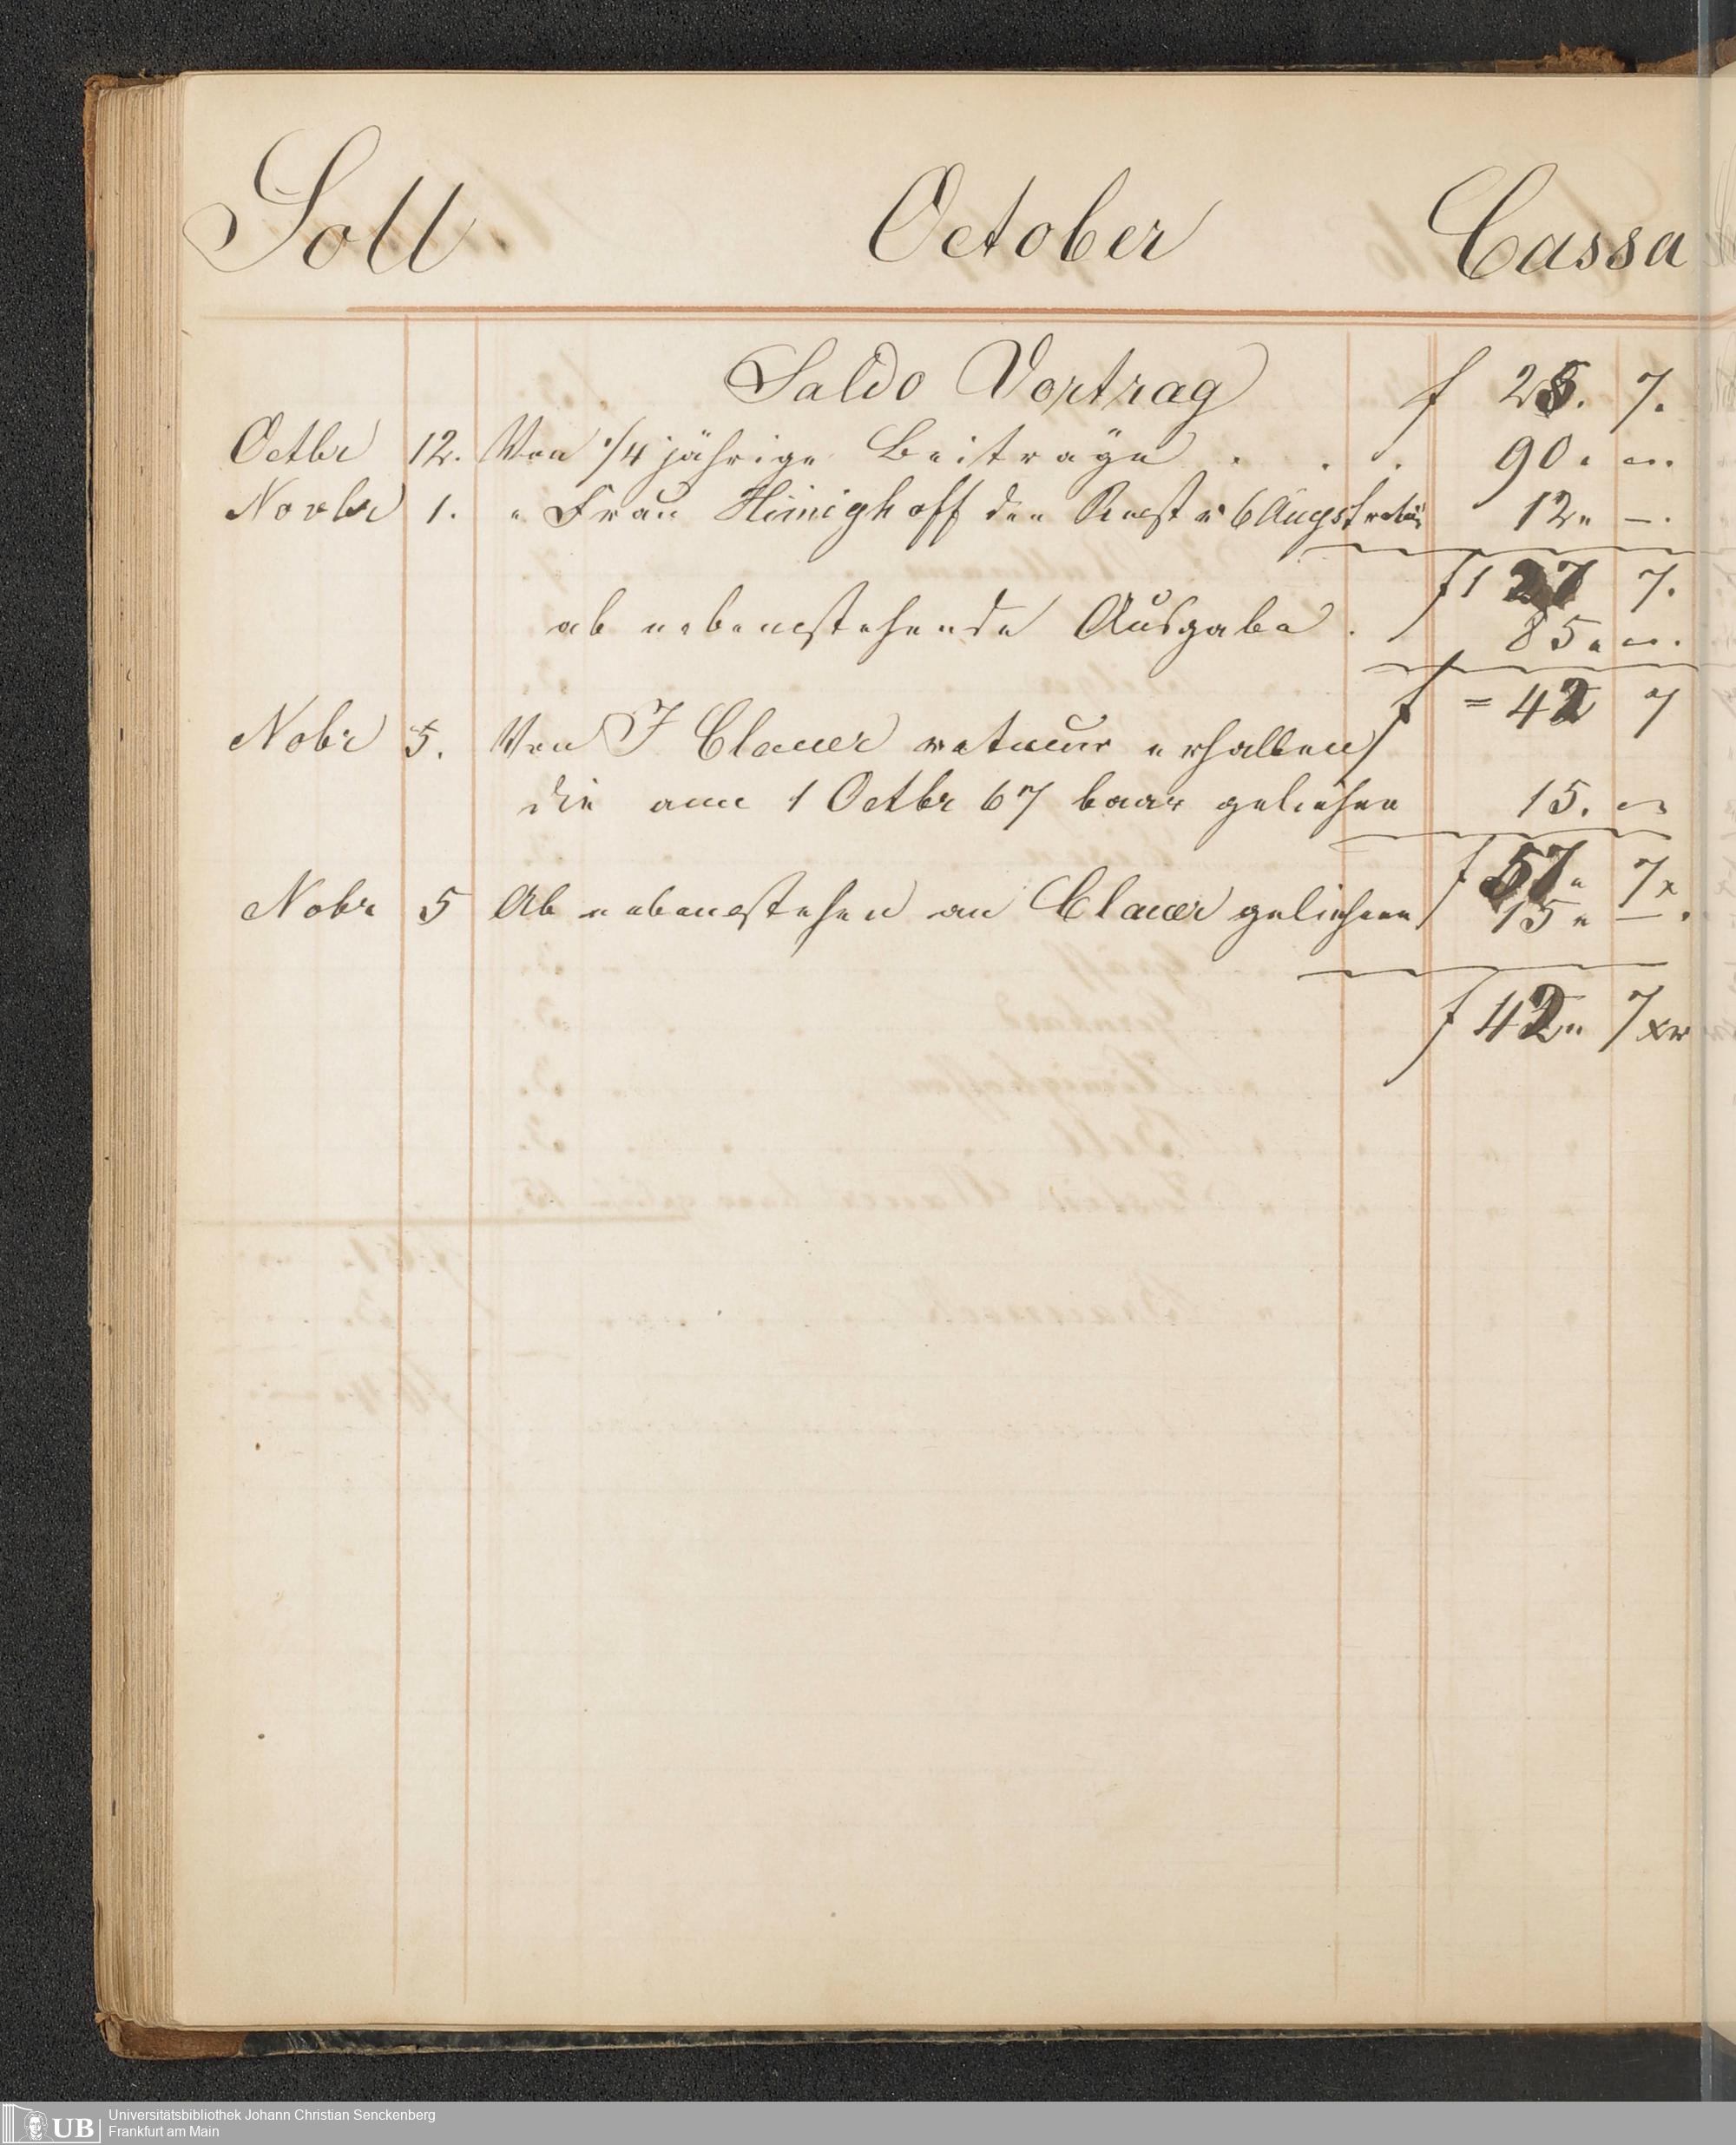 Soll October Cassa
Saldo Vortrag f 25. 7.
Octbr 12. Von 1/4 jährige Beiträge . . . 90. "
Novbr 1. " Frau Hünighoff den Rest v 6 Augst 12 " —.
f 127 7.
ab nebenstehende Ausgabe . 85 " ".
f = 42 7
Nobr 5. Von J Clauer retour erhalten
die am 1 Octbr 67 baar geliehen 15. "
f 57 " 7x
Nobr 5 Ab nebenstehen an Clauer geliehen 15 " —.
f 42 " 7 xr
UB Universitätsbibliothek Johann Christian Senckenberg
Frankfurt am Main